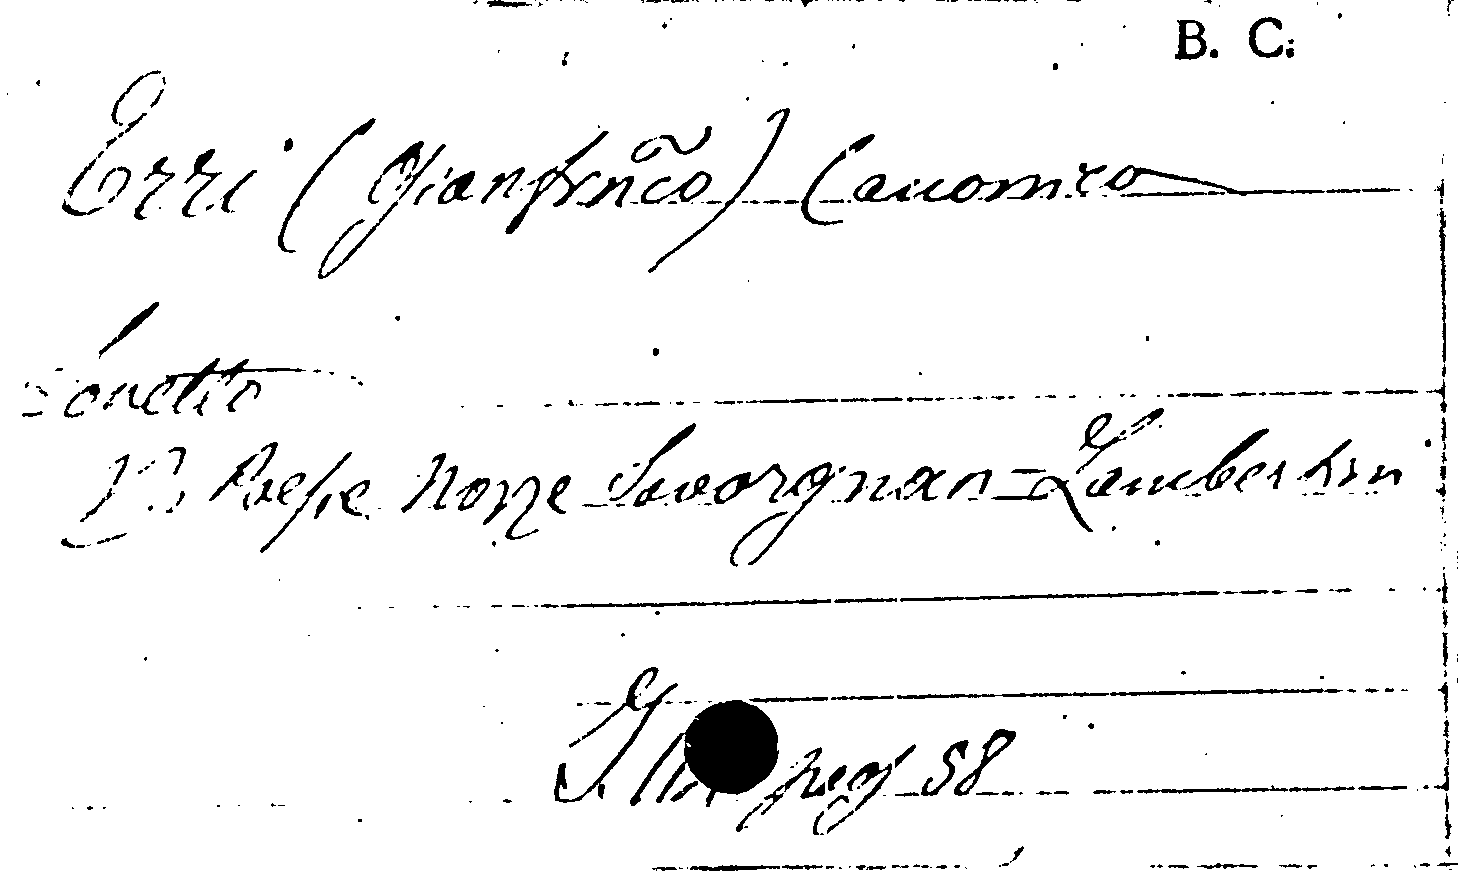 B. C.
Erri (Gianfrñco) Canonico
Sonetto
Nozze Savorgnan=Lambertini
pag 58